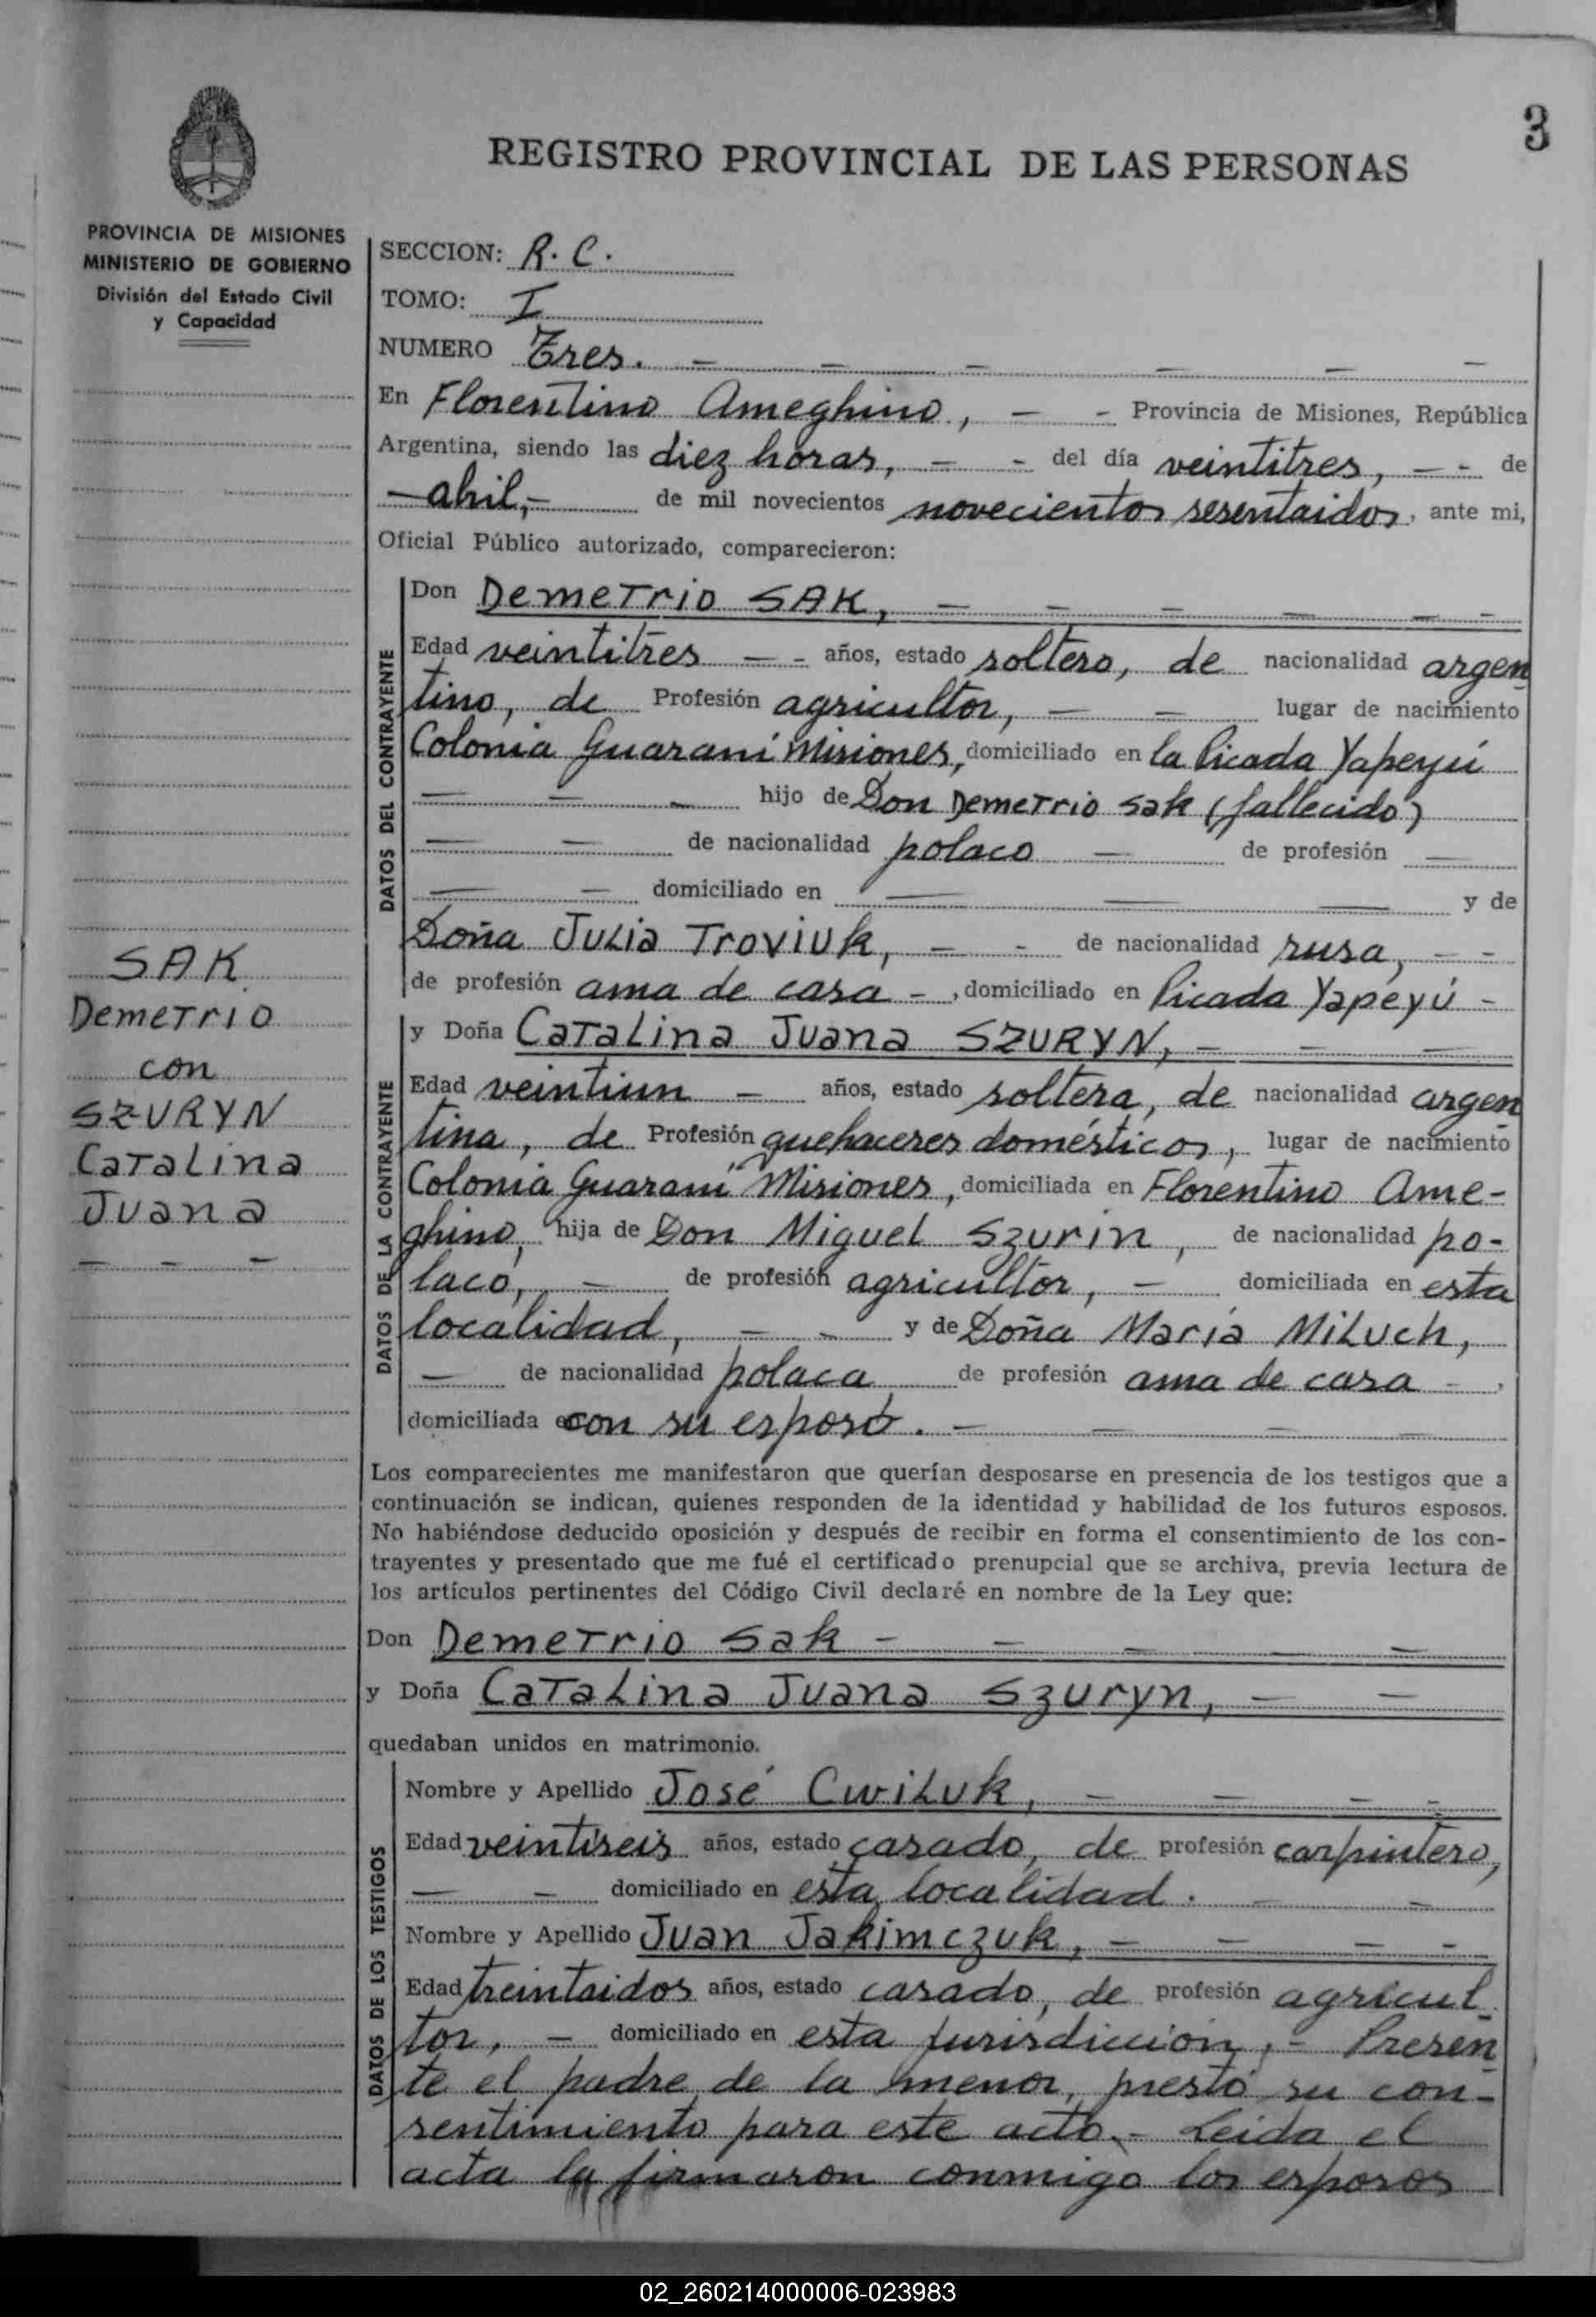 3
REGISTRO PROVINCIAL DE LAS PERSONAS
PROVINCIA DE MISIONES
MINISTERIO DE GOBIERNO
División del Estado Civil
y Capacidad
SECCION: R. C.
TOMO: I
NUMERO Tres. — — — — — —
En Florentino Ameghino, — - Provincia de Misiones, República
Argentina, siendo las diez horas, — - del día veintitres, — - de
— abril, - de mil novecientos novecientos sesentaidos, ante mi,
Oficial Público autorizado, comparecieron:
DATOS DEL CONTRAYENTE
Don Demetrio SAK, — — — — — -
Edad veintitres — - años, estado soltero, de nacionalidad argen
tino, de Profesión agricultor, — — lugar de nacimiento
Colonia Guaraní Misiones, domiciliado en la Picada Yapeyú
— — - hijo de Don Demetrio Sak (fallecido)
— — de nacionalidad polaco — de profesión —
— — domiciliado en — — — y de
Doña Julia Troviuk, — - de nacionalidad rusa, — -
de profesión ama de casa -, domiciliado en Picada Yapeyú -
SAK
Demetrio
con
SZURYN
Catalina
Juana
— — —
DATOS DE LA CONTRAYENTE
y Doña Catalina Juana SZURYN, — — —
Edad veintiun — años, estado soltera, de nacionalidad argen
tina, de Profesión quehaceres domésticos, lugar de nacimiento
Colonia Guaraní Misiones, domiciliada en Florentino Ame-
ghino, hija de Don Miguel Szurin, de nacionalidad po-
laco, — de profesión agricultor, — domiciliada en esta
localidad, — - y de Doña María Miluch,
— de nacionalidad polaca de profesión ama de casa - ,
domiciliada con su esposo. — — — —
Los comparecientes me manifestaron que querían desposarse en presencia de los testigos que a
continuación se indican, quienes responden de la identidad y habilidad de los futuros esposos.
No habiéndose deducido oposición y después de recibir en forma el consentimiento de los con-
trayentes y presentado que me fué el certificado prenupcial que se archiva, previa lectura de
los artículos pertinentes del Código Civil declaré en nombre de la Ley que:
Don Demetrio Sak - — — — —
y Doña Catalina Juana Szuryn, — —
quedaban unidos en matrimonio.
DATOS DE LOS TESTIGOS
Nombre y Apellido José Cwiluk, — — — -
Edad veintiseis años, estado casado, de profesión carpintero,
— — domiciliado en esta localidad. — —
Nombre y Apellido Juan Jakimczuk, — — — -
Edad treintaidos años, estado casado, de profesión agricul
tor, — domiciliado en esta jurisdicción, - Presen
te el padre de la menor, prestó su con-
sentimiento para este acto. - Leida el
acta la firmaron conmigo los esposos
02_260214000006-023983